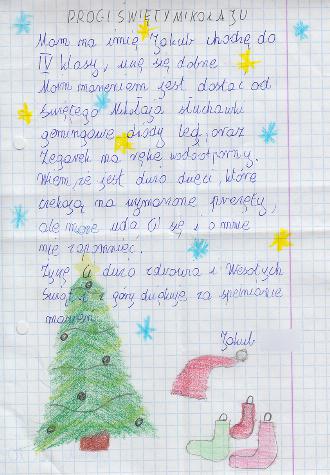 DROGI ŚWIĘTY MIKOŁAJU
Mam na imię Jakub chodzę do
IV klasy, uczę się dobrze
Moim marzeniem jest dostać od
Świętego Mikołaja słuchawki
gemingowe, a oraz
Zegarek na rękę wodoodporny.
Wiem, że jest dużo dzieci, które
czekają na wymarzone prezęty,
ale może uda Ci się i o mnie
nie zapomnieć.
Życzę Ci dużo zdrowia i Wesołych
Świąt i z góry dziękuję za spełnienie
marzeń.
Jakub